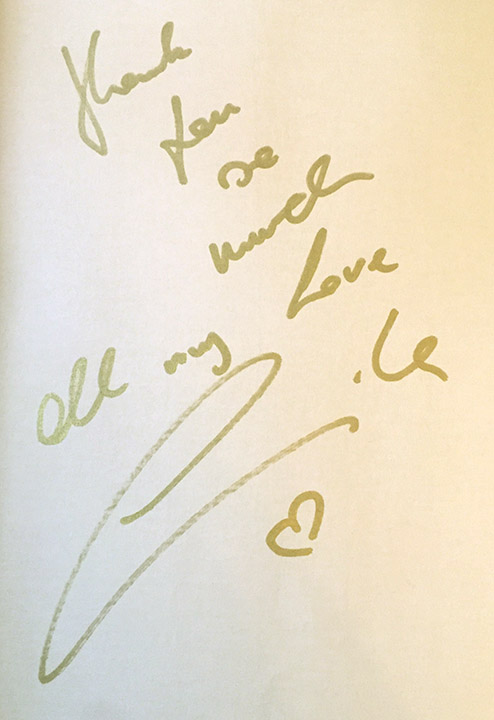 Thank
you
so
much
All my Love